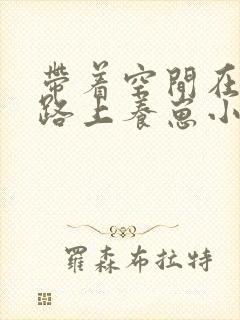 帶着空間在
路上養崽小
羅森布拉特